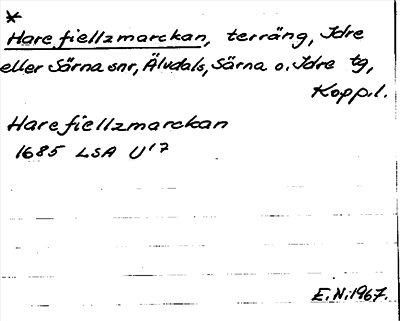 *
Harefiellzmarckan, terräng, Idre
eller Särna snr, Älvdals, Särna o. Idre tg,
Kopp.l.
Harefiellzmarckan
1685 LSA U17
E.N.1967.